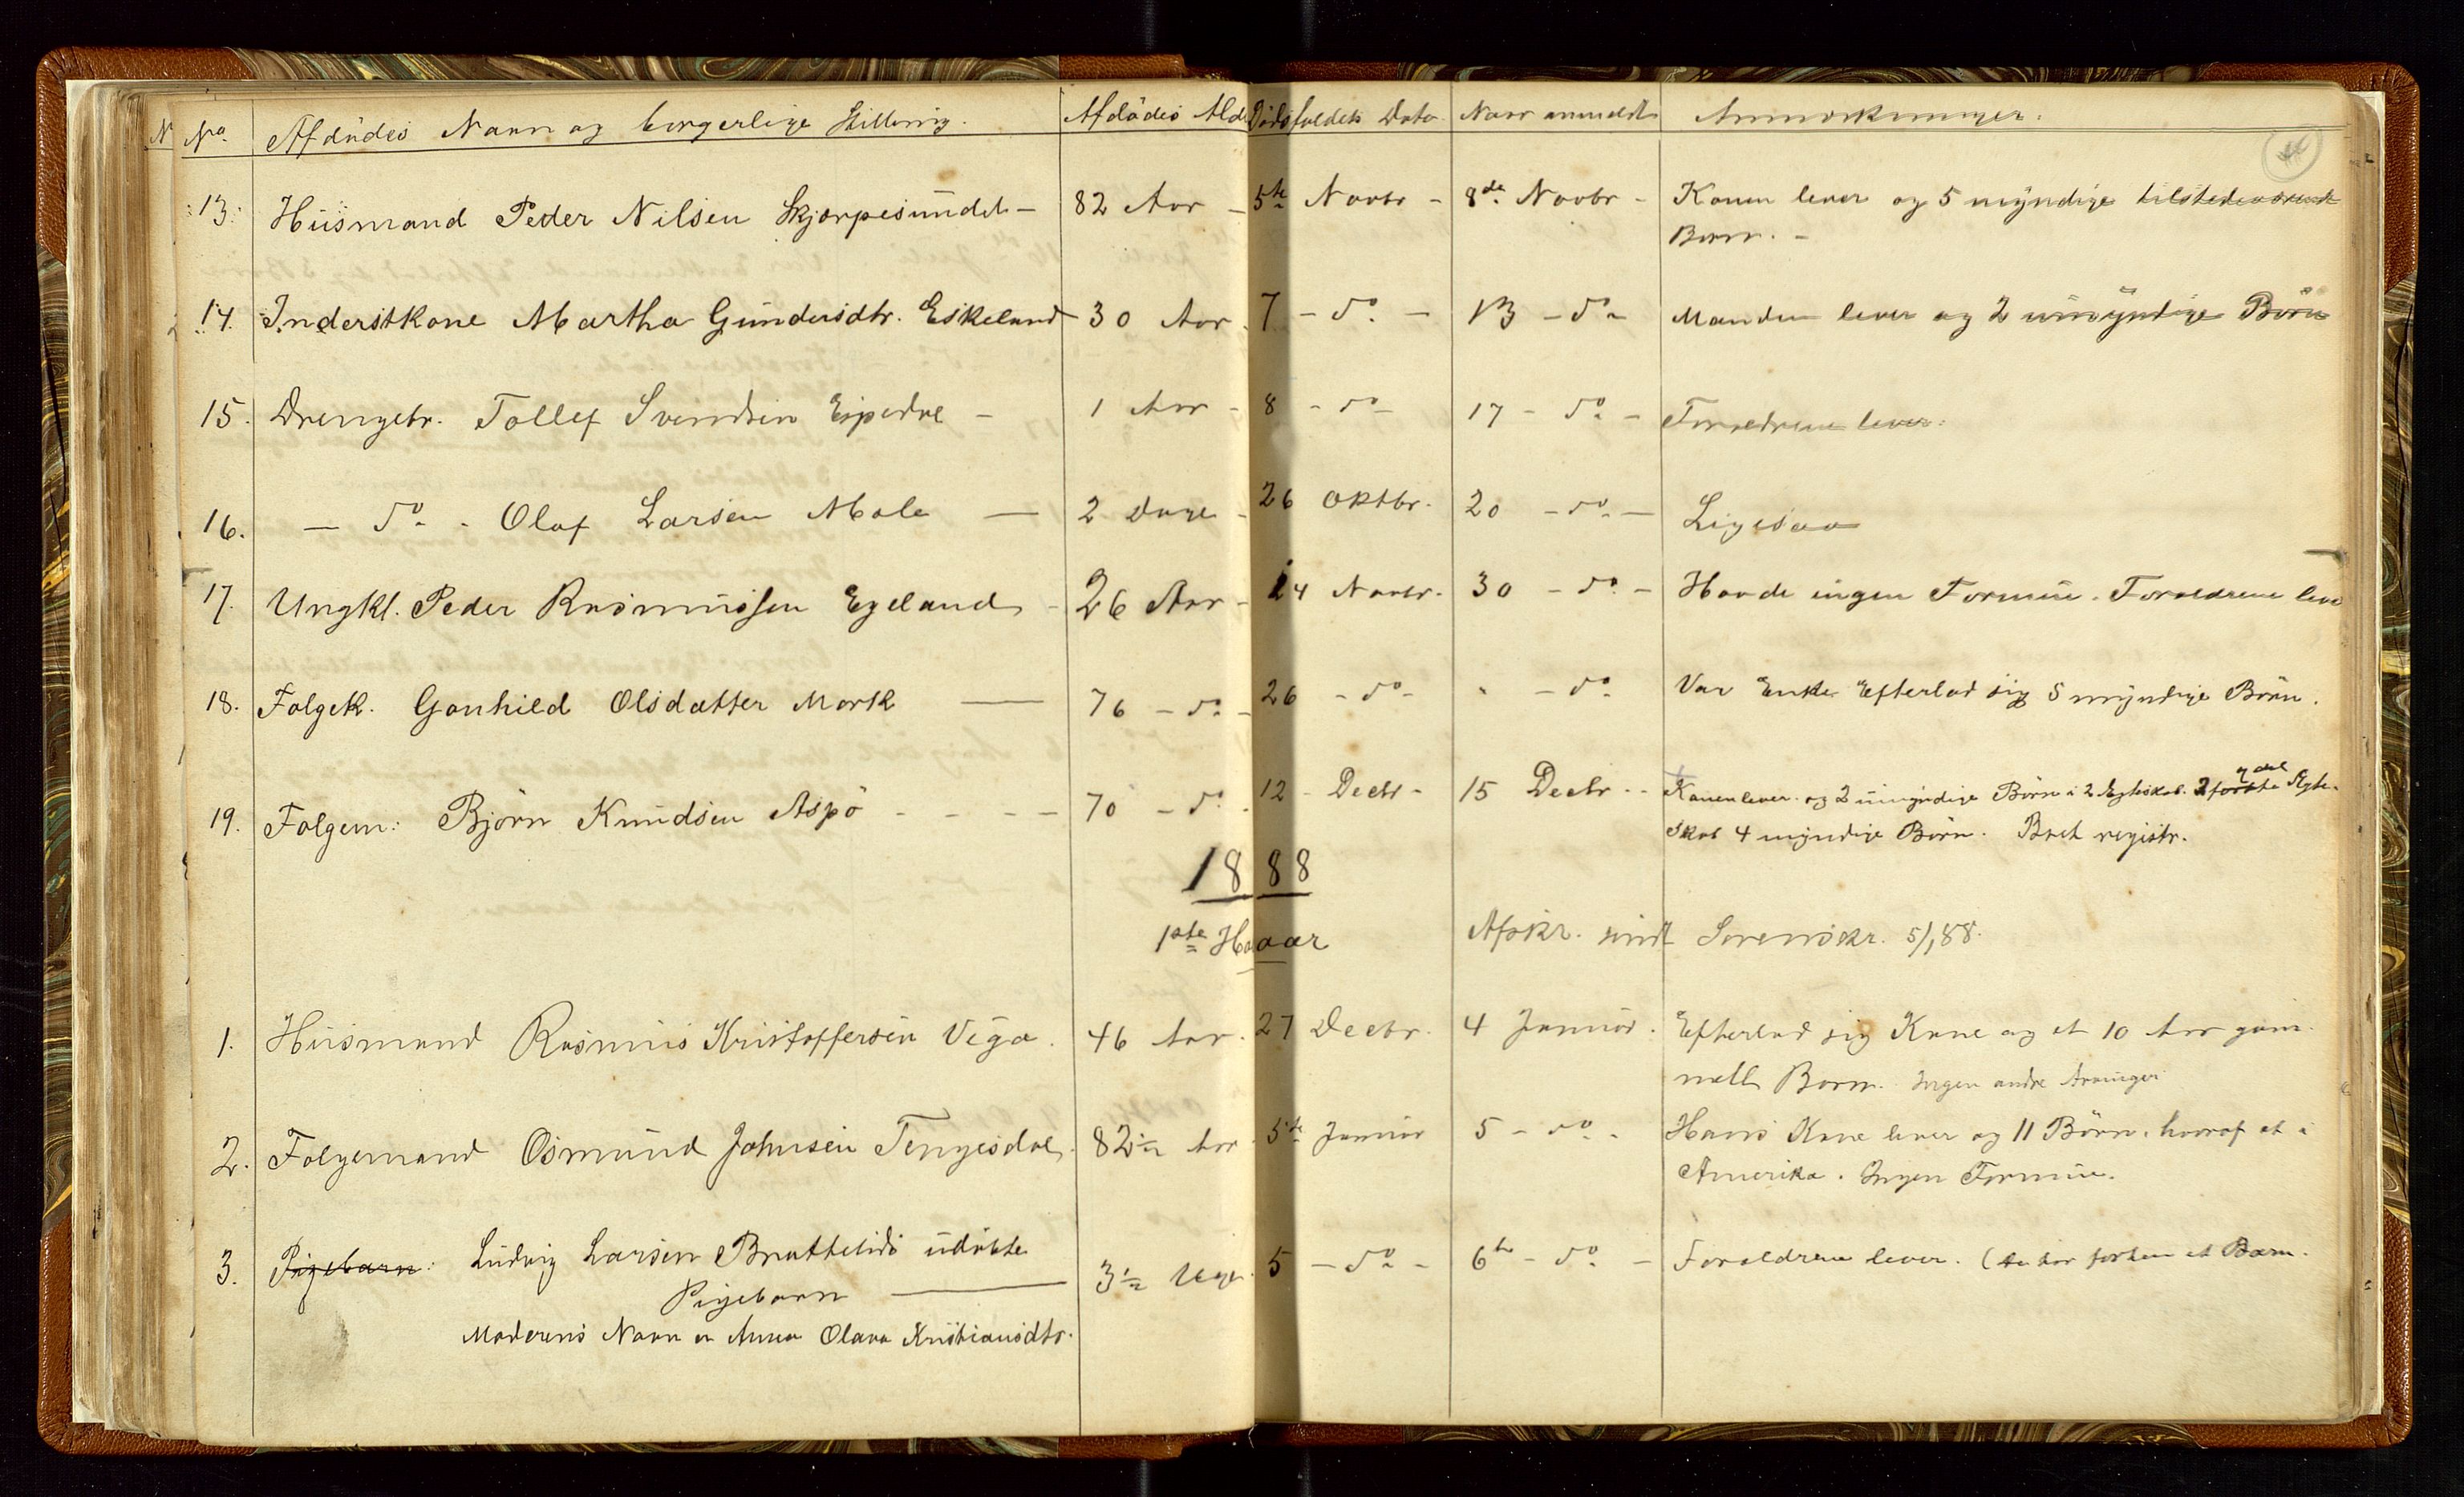 No. Afdødes Navn og borgerlige Stilling. Afdødes Ald Dødsfaldets Dato Naar anmeldt Anmærkninger.
13. Huusmand Peder Nilsen Skjærpesundet – 82 Aar – 5te Novbr – 8de Novbr – Konen lever og 5 myndige tilstedeværende
Børn. –
14. Inderstkone Martha Gundersdtr. Eskeland 30 Aar. 7 – do. – 13 – do – Manden lever og 2 umyndige Børn
15. Drengebr. Tollef Svendsen Eipedal – 1 Aar – 8 – do – 17 – do. – Forældrene lever.
16. – do. – Olaf Larsen Mæle – 2 Dage – 26 Oktbr. 20 – do. – Ligesaa
17. Ungkl. Peder Rasmussen Egeland – 26 Aar – 24 Novbr. 30 – do. – Havde ingen Formue. Forældrene leve
18. Folgek. Gonhild Olsdatter Mork – 76 – do. – 26 – do – " – do. Var Enke. Efterlod sig 5 myndige Børn.
19. Folgem: Bjørn Knudsen Aspø – – – – 70 – do. – 12 – Decbr – 15 Decbr. – Konen lever og 2 umyndige Børn i 2 Ægteskab.
Skab 4 myndige Børn. registr.
1888
1ste Haaar Afskr. sendt Sorenskr. 5/1 88.
1. Huusmand Rasmus Kristoffersen Vega. 46 Aar. 27 Decbr. 4 Januar. Efterlod sig Kone og et 10 Aar gam
melt Barn. Ingen andre Arvinger
2. Folgemand Osmund Johnsen Tengesdal. 82½ Aar 5te Januar 5 – do. – Hans Kone lever og 11 Børn, hvoraf et i
Amerika. Ingen Formue.
3. Pigebarn: Ludvig Larsen Brattelids udøbte
Pigebarn – 3½ Uge. 5 – do. – 6te – do. – Forældrene lever. (de har forhen et Barn.
Moderens Navn er Anna Olava Kristiansdtr.